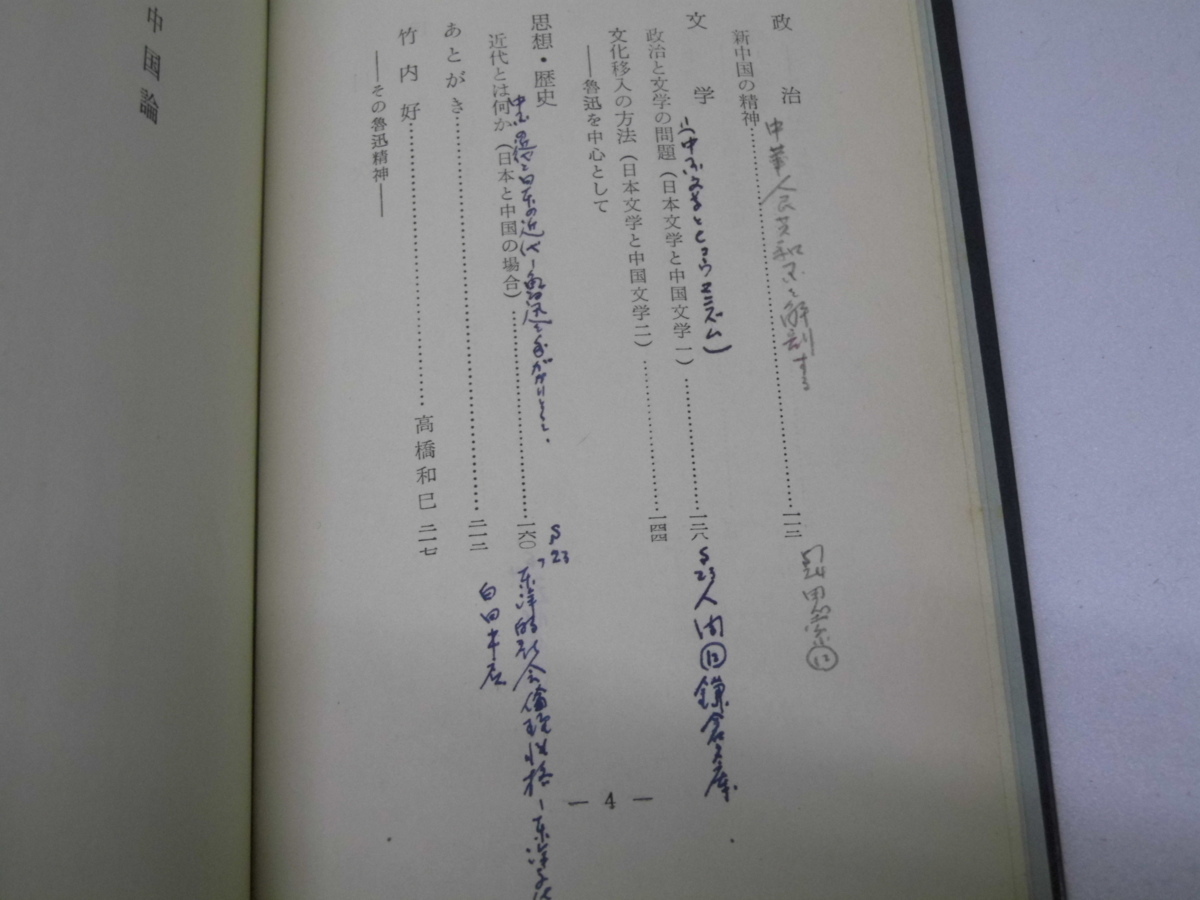 政治
新中国の精神……一一二
中華人民共和国を解剖する
文学
(中国文学とヒューマニズム)
政治と文学の問題(日本文学と中国文学 一)……一二八
S23 人間 鎌倉文庫
文化移入の方法(日本文学と中国文学 二)……一四四
——魯迅を中心として
思想・歴史
中国の近代と日本の近代—魯迅を手がかりとして
近代とは何か(日本と中国の場合)……一六〇
S23
「東洋的社会倫理性格—東洋
白日書店
あとがき……二一二
竹内好……高橋和巳 二一七
——その魯迅精神——
— 4 —
中国論